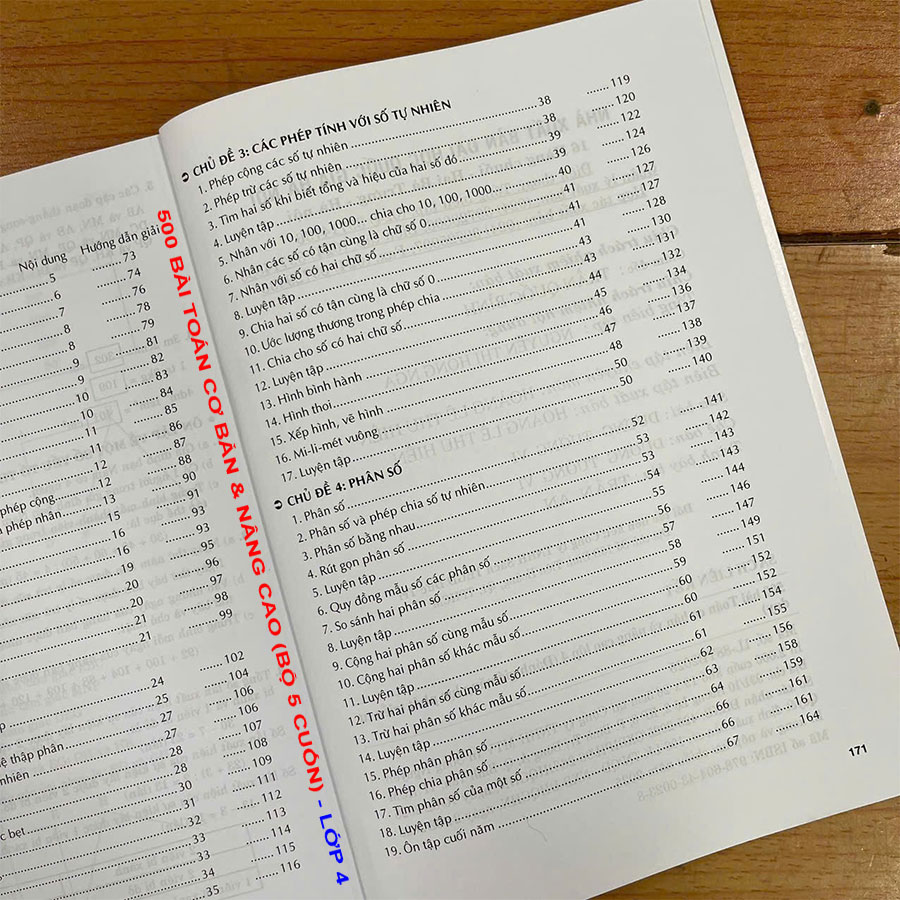 Nội dung Hướng dẫn giải
5 ........ 73
6 ........ 74
7 ........ 76
8 ........ 78
8 ........ 79
9 ........ 81
9 ........ 82
10 ........ 83
10 ........ 84
11 ........ 85
11 ........ 86
12 ........ 87
phép cộng ........ 12 ........ 88
phép nhân ........ 13 ........ 90
15 ........ 91
16 ........ 93
16 ........ 93
19 ........ 95
20 ........ 96
20 ........ 97
21 ........ 98
21 ........ 99
24 ........ 102
25 ........ 104
27 ........ 106
ệ thập phân ........ 27 ........ 106
nhiên ........ 28 ........ 107
28 ........ 108
30 ........ 109
31 ........ 111
c bẹt ........ 32 ........ 112
33 ........ 113
33 ........ 114
34 ........ 115
35 ........ 116
500 BÀI TOÁN CƠ BẢN & NÂNG CAO (BỘ 5 CUỐN) - LỚP 4
CHỦ ĐỀ 3: CÁC PHÉP TÍNH VỚI SỐ TỰ NHIÊN
1. Phép cộng các số tự nhiên ........ 38 ........ 119
2. Phép trừ các số tự nhiên ........ 38 ........ 120
3. Tìm hai số khi biết tổng và hiệu của hai số đó ........ 39 ........ 122
4. Luyện tập ........ 39 ........ 124
5. Nhân với 10, 100, 1000... chia cho 10, 100, 1000... ........ 40 ........ 126
6. Nhân các số có tận cùng là chữ số 0 ........ 41 ........ 127
7. Nhân với số có hai chữ số ........ 41 ........ 127
8. Luyện tập ........ 41 ........ 128
9. Chia hai số có tận cùng là chữ số 0 ........ 43 ........ 130
10. Ước lượng thương trong phép chia ........ 43 ........ 131
11. Chia cho số có hai chữ số ........ 44 ........ 132
12. Luyện tập ........ 45 ........ 134
13. Hình bình hành ........ 46 ........ 136
14. Hình thoi ........ 47 ........ 137
15. Xếp hình, vẽ hình ........ 48 ........ 138
16. Mi-li-mét vuông ........ 50 ........ 139
17. Luyện tập ........ 50 ........ 140
CHỦ ĐỀ 4: PHÂN SỐ
1. Phân số ........ 52 ........ 141
2. Phân số và phép chia số tự nhiên ........ 53 ........ 142
3. Phân số bằng nhau ........ 53 ........ 143
4. Rút gọn phân số ........ 54 ........ 143
5. Luyện tập ........ 55 ........ 144
6. Quy đồng mẫu số các phân số ........ 56 ........ 146
7. So sánh hai phân số ........ 57 ........ 147
8. Luyện tập ........ 58 ........ 149
9. Cộng hai phân số cùng mẫu số ........ 59 ........ 151
10. Cộng hai phân số khác mẫu số ........ 60 ........ 152
11. Luyện tập ........ 60 ........ 152
12. Trừ hai phân số cùng mẫu số ........ 61 ........ 154
13. Trừ hai phân số khác mẫu số ........ 61 ........ 155
14. Luyện tập ........ 62 ........ 156
15. Phép nhân phân số ........ 63 ........ 158
16. Phép chia phân số ........ 64 ........ 159
17. Tìm phân số của một số ........ 66 ........ 161
18. Luyện tập ........ 66 ........ 161
19. Ôn tập cuối năm ........ 67 ........ 164
171